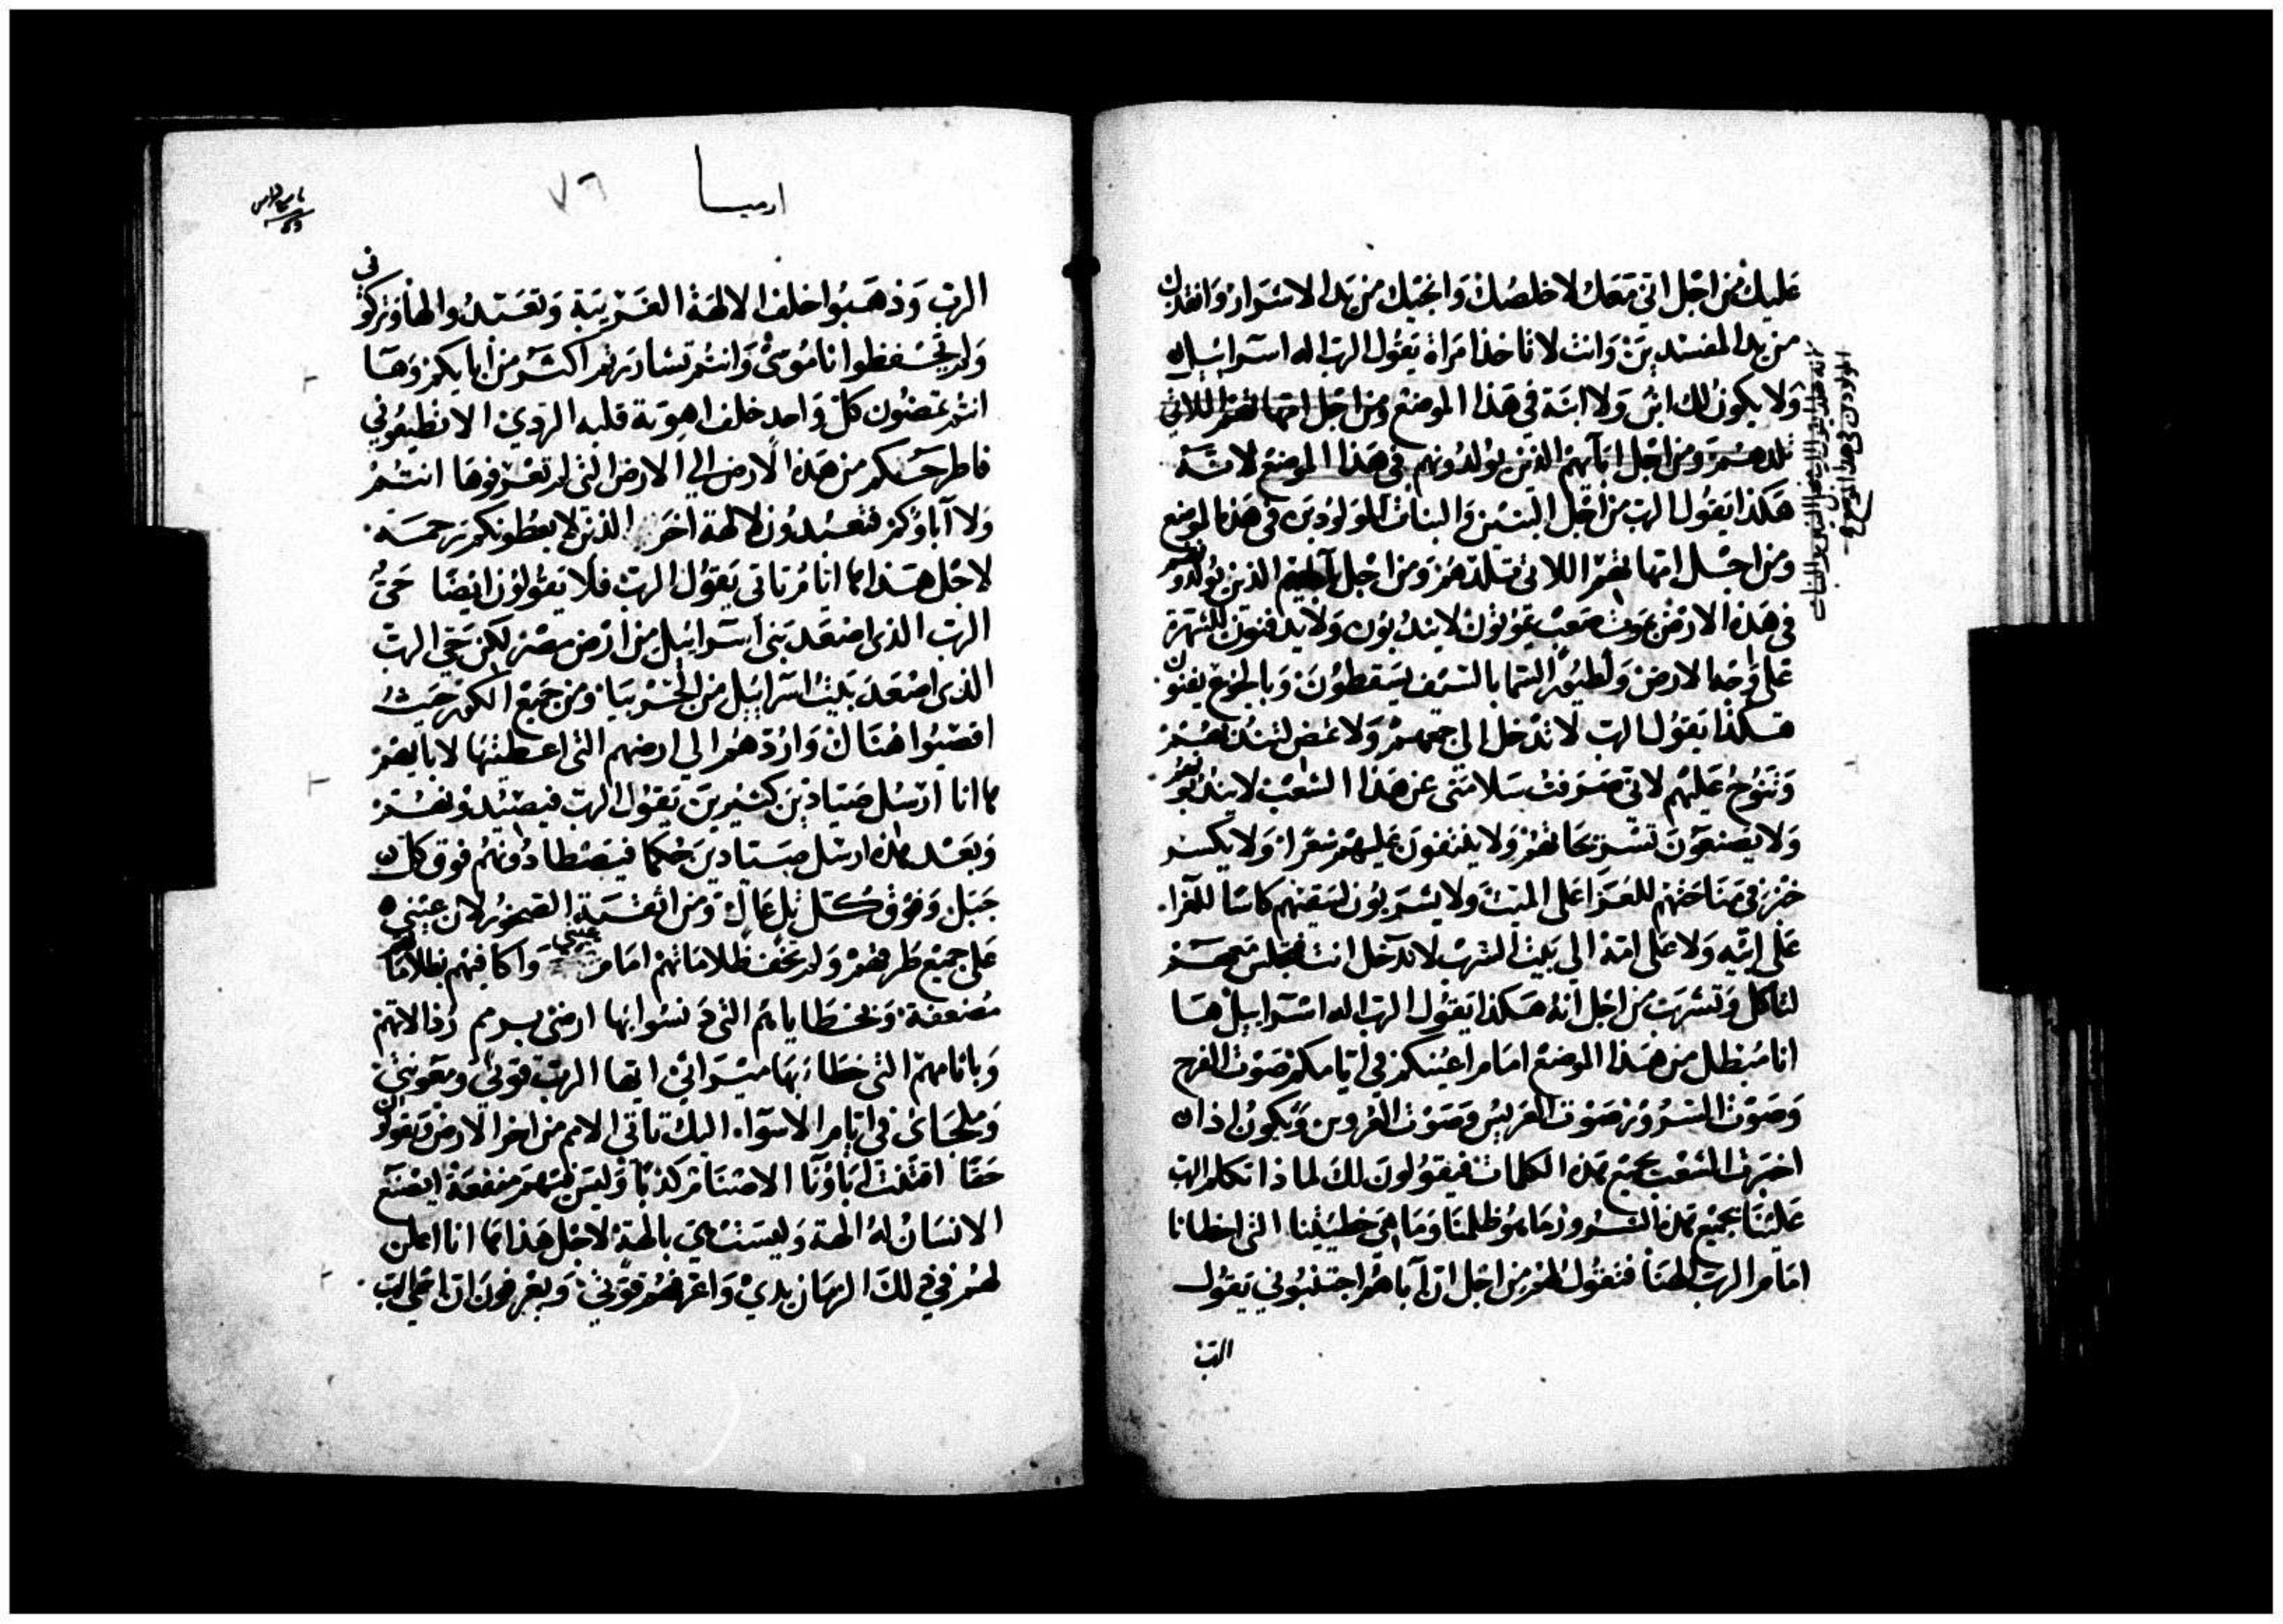 عليك من اجل اني معك لاخلصك وانجيك من يد الاسرار وانقدك
من يد المفسدين وانت لا تاخذ امراة يقول الرب اله اسراييل
ولا يكون لك ابن ولا ابنة في هذا الموضع ومن اجل امهاتهم اللاتي
تلدهم ومن اجل ابآيهم الذين يولدونهم في هذا الموضع لانه
هكذا يقول الرب من اجل البنين والبنات المولودين في هذا الموضع
ومن اجل امهاتهم اللاتي تلدهم ومن اجل ابآيهم الذين يولدونهم
في هذه الارض بموت صعب يموتون لا يندبون ولا يدفنون للشهرة
على وجه الارض ولطيور السما بالسيف يسقطون وبالجوع يفنون
هكذا يقول الرب لا تدخل الى جمعهم ولا تمض لتندبهم
وتنوح عليهم لاني صرفت سلامتي عن هذا الشعب لا يندبونهم
ولا يصنعون تسريحاتهم ولا ينتفون عليهم شعرا ولا يكسر
خبز في مناحتهم للعزا على الميت ولا يشربون لسقيهم كاسا للعزا
على ابيه ولا على امه الى بيت الشرب لا تدخل انت لتجلس معهم
لتاكل وتشرب من اجل انه هكذا يقول الرب اله اسراييل ها
انا مبطل من هذا الموضع امام اعينكم في ايامكم صوت الفرح
وصوت السرور صوت العريس وصوت العروس ويكون اذا
اخبرت الشعب بجميع هذه الكلمات فيقولون لك لماذا تكلم الرب
علينا بجميع هذه الشرور وما هو ظلمنا وما هي خطيتنا التي اخطانا
امام الرب الهنا فتقول لهم من اجل ان آباهم اجتنبوني يقول
الرب
لانه هكذا يقول الرب من اجل البنين والبنات
المولودين في هذا الموضع
ارميا
٧٦
الرب وذهبوا خلف الالهة الغريبة وتعبدوا لها وتركوني
ولم يحفظوا ناموسي وانتم تساررتم اكثر من ابايكم وها
انتم تمضون كل واحد خلف اهوية قلبه الردي الا تطيعوني
فاطرحكم من هذه الارض الي الارض التي لم تعرفوها انتم
ولا آباوكم فتعبدون لالهة اخر الذين لا يعطونكم رحمة
لاجل هذا ها انا مرتاتي يقول الرب فلا يقولون ايضا حي
الرب الذي اصعد بني اسراييل من ارض مصر لكن حي الرب
الذي اصعد بيت اسراييل من الجربيا ومن جميع الكور حيث
اقصيوا هناك واردهم الي ارضهم التي اعطيتها لابايهم
ها انا ارسل صيادين كثيرين يقول الرب فيصيدونهم
وبعد هذه ارسل صيادين حكما فيصطادونهم فوق كل
جبل وفوق كل تل عال ومن اثقبة الصخور لان عيني
على جميع طرقهم ولم تخف ظلاماتهم امام عيني واكافيهم بظلاماتهم
مضعفة وبخطاياهم التي دنسوا بها ارضي برمم رذالاتهم
وباثامهم التي خطاء بها ميراثي ايها الرب قوتي ومعونتي
وملجاي في ايام الاسوا اليك تاتي الامم من اخر الارض ويقولون
حقا اقتنت اباونا الاصنام كذبا وليس فيهم منفعة ايصنع
الانسان له الهة وليست هي بالهة لاجل هذا ها انا اعلن
لهم في ذلك الزمان يدي واعرفهم قوتي ويعرفون ان اسمي الرب